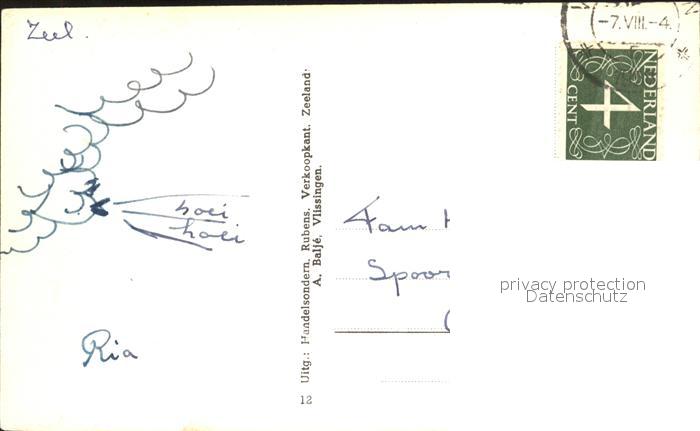 Zeel.
hoei
hoei
Ria
Uitg.: Handelsondern. Rubens, Verkoopkant. Zeeland:
A. Baljé, Vlissingen.
12
-7.VIII.-4.
NEDERLAND
4
CENT
Fam H
Spoor
privacy protection
Datenschutz